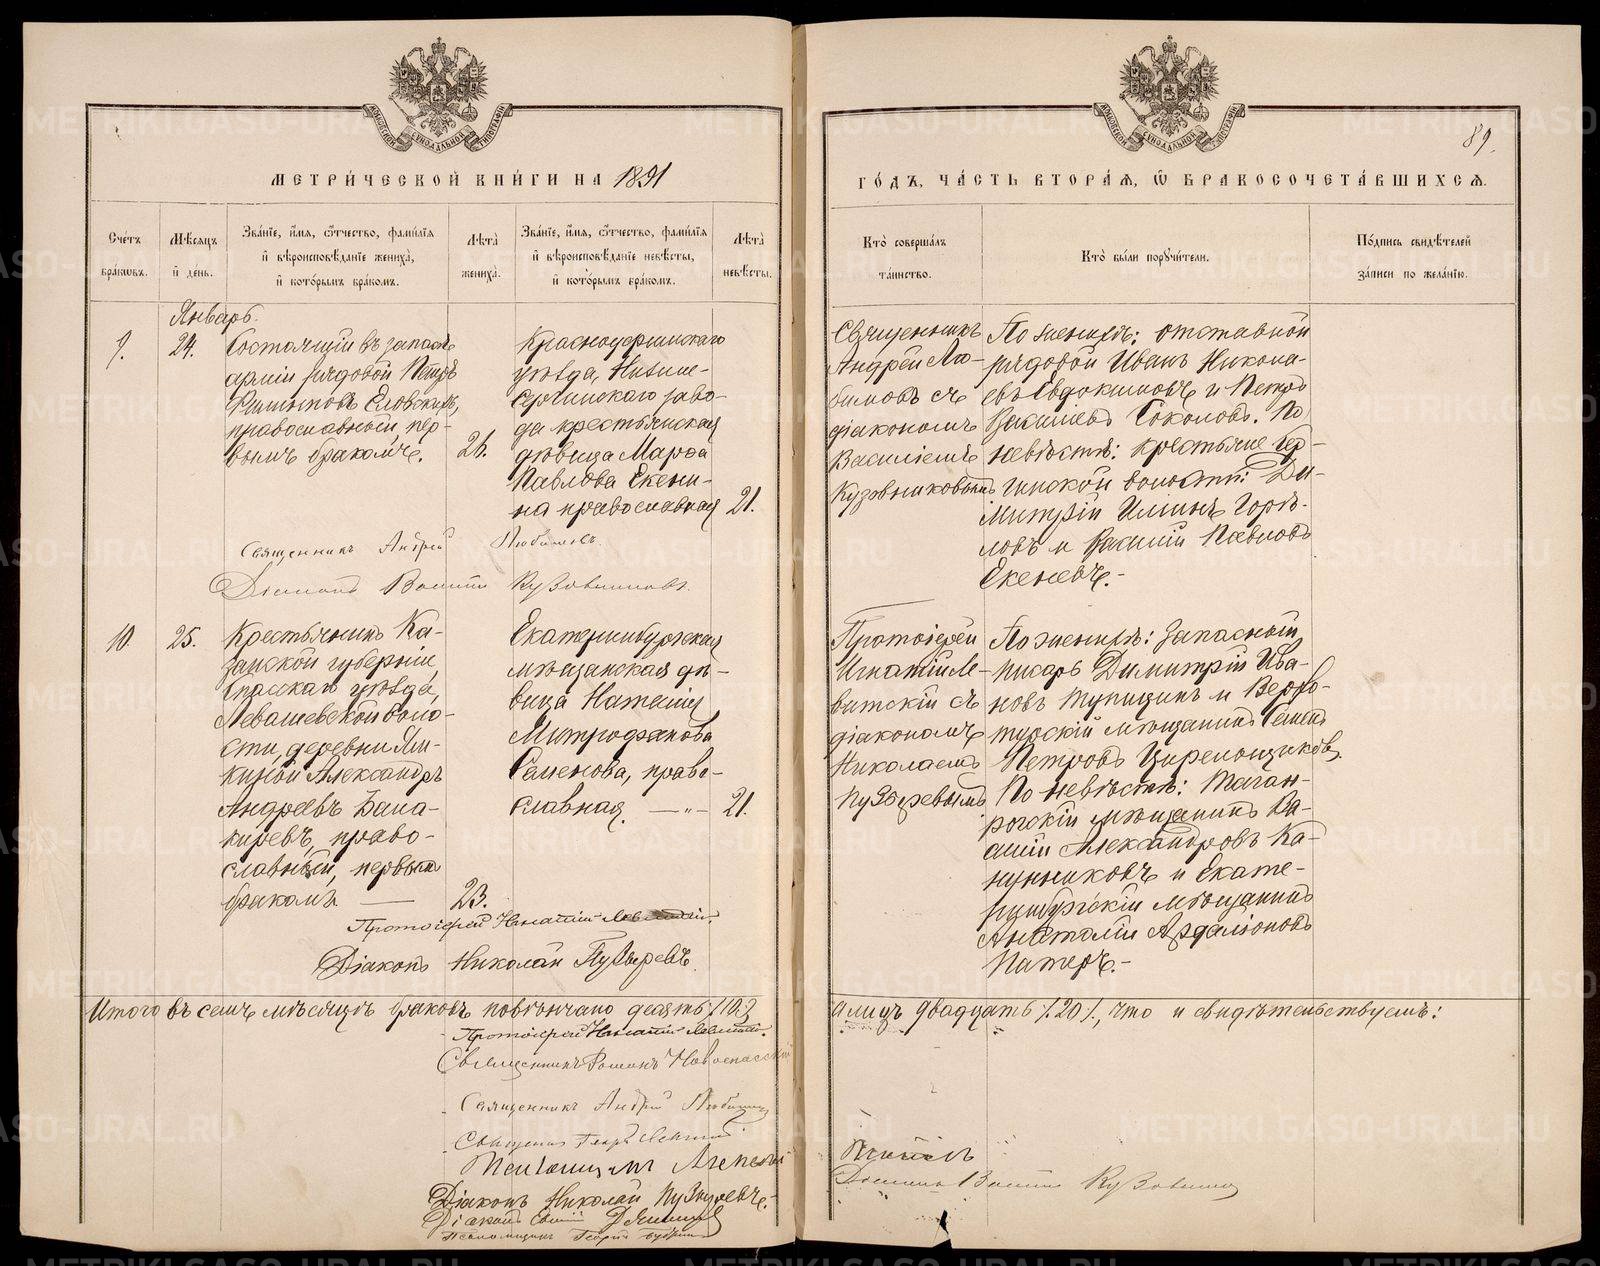 МЕТРИЧЕСКОЙ КНИГИ НА 1891
Счетъ браковъ.
Мѣсяцъ и день.
Званіе, имя, отчество, фамилія и вѣроисповѣданіе жениха, и которымъ бракомъ.
Лѣта жениха.
Званіе, имя, отчество, фамилія и вѣроисповѣданіе невѣсты, и которымъ бракомъ.
Лѣта невѣсты.
Январь.
9.
24.
Состоящій въ запасѣ
арміи рядовой Петръ
Словскихъ,
православный, пер-
вымъ бракомъ.
26.
Красноуфимскаго
уѣзда, Нижне-
Сергинскаго заво-
да крестьянская
дѣвица Марѳа
Павлова Екени-
на православная
21.
Священникъ Андрей Любимовъ.
Діаконъ Василій Кузовниковъ.
10.
25.
Крестьянинъ Ка-
занской губерніи,
Спасскаго уѣзда,
Левашевской воло-
сти, деревни
Александръ
Андреевъ Бала-
киревъ, право-
славный, первымъ
бракомъ —
23.
Екатеринбургская
мѣщанская дѣ-
вица Наталія
Митрофанова
Семенова, право-
славная. — „ —
21.
Протоіерей Игнатій Левитскій.
Діаконъ Николай Пузыревъ.
Итого въ семъ мѣсяцѣ браковъ повѣнчано десять /10./
Протоіерей Игнатій Левитскій.
Священникъ Романъ Новоспасскій
Священникъ Андрей Любимовъ
Священникъ
Псаломщикъ
Діаконъ Николай Пузыревъ.
Діаконъ
Псаломщикъ Георгій
89.
ГОДЪ, ЧАСТЬ ВТОРАЯ, Ѡ БРАКОСОЧЕТАВШИХСЯ.
Кто совершалъ таинство.
Кто были поручители.
Подпись свидѣтелей записи по желанію.
Священникъ
Андрей Лю-
бимовъ съ
діакономъ
Василіемъ
Кузовниковымъ
По женихѣ: отставной
рядовой Иванъ Никола-
евъ Евдокимовъ и Петръ
Васильевъ Соколовъ. По
невѣстѣ: крестьяне Сер-
гинской волости: Ди-
митрій Ильинъ Горѣ-
ловъ и Василій Павловъ
Екеневъ.-
Протоіерей
Игнатій Ле-
витскій съ
діакономъ
Николаемъ
Пузыревымъ
По женихѣ: запасный
писарь Димитрій Ива-
новъ Тупицинъ и Верхо-
турскій мѣщанинъ Семенъ
Петровъ Циремонщиковъ.
По невѣстѣ: Таган-
рогскій мѣщанинъ Ва-
силій Александровъ Ка-
нунниковъ и Екате-
ринбургскій мѣщанинъ
Анатолій Ардаліоновъ
Патеръ.-
а лицъ двадцать /.20/., что и свидѣтельствуемъ:
Діаконъ Василій Кузовниковъ
METRIKI.GASO-URAL.RU